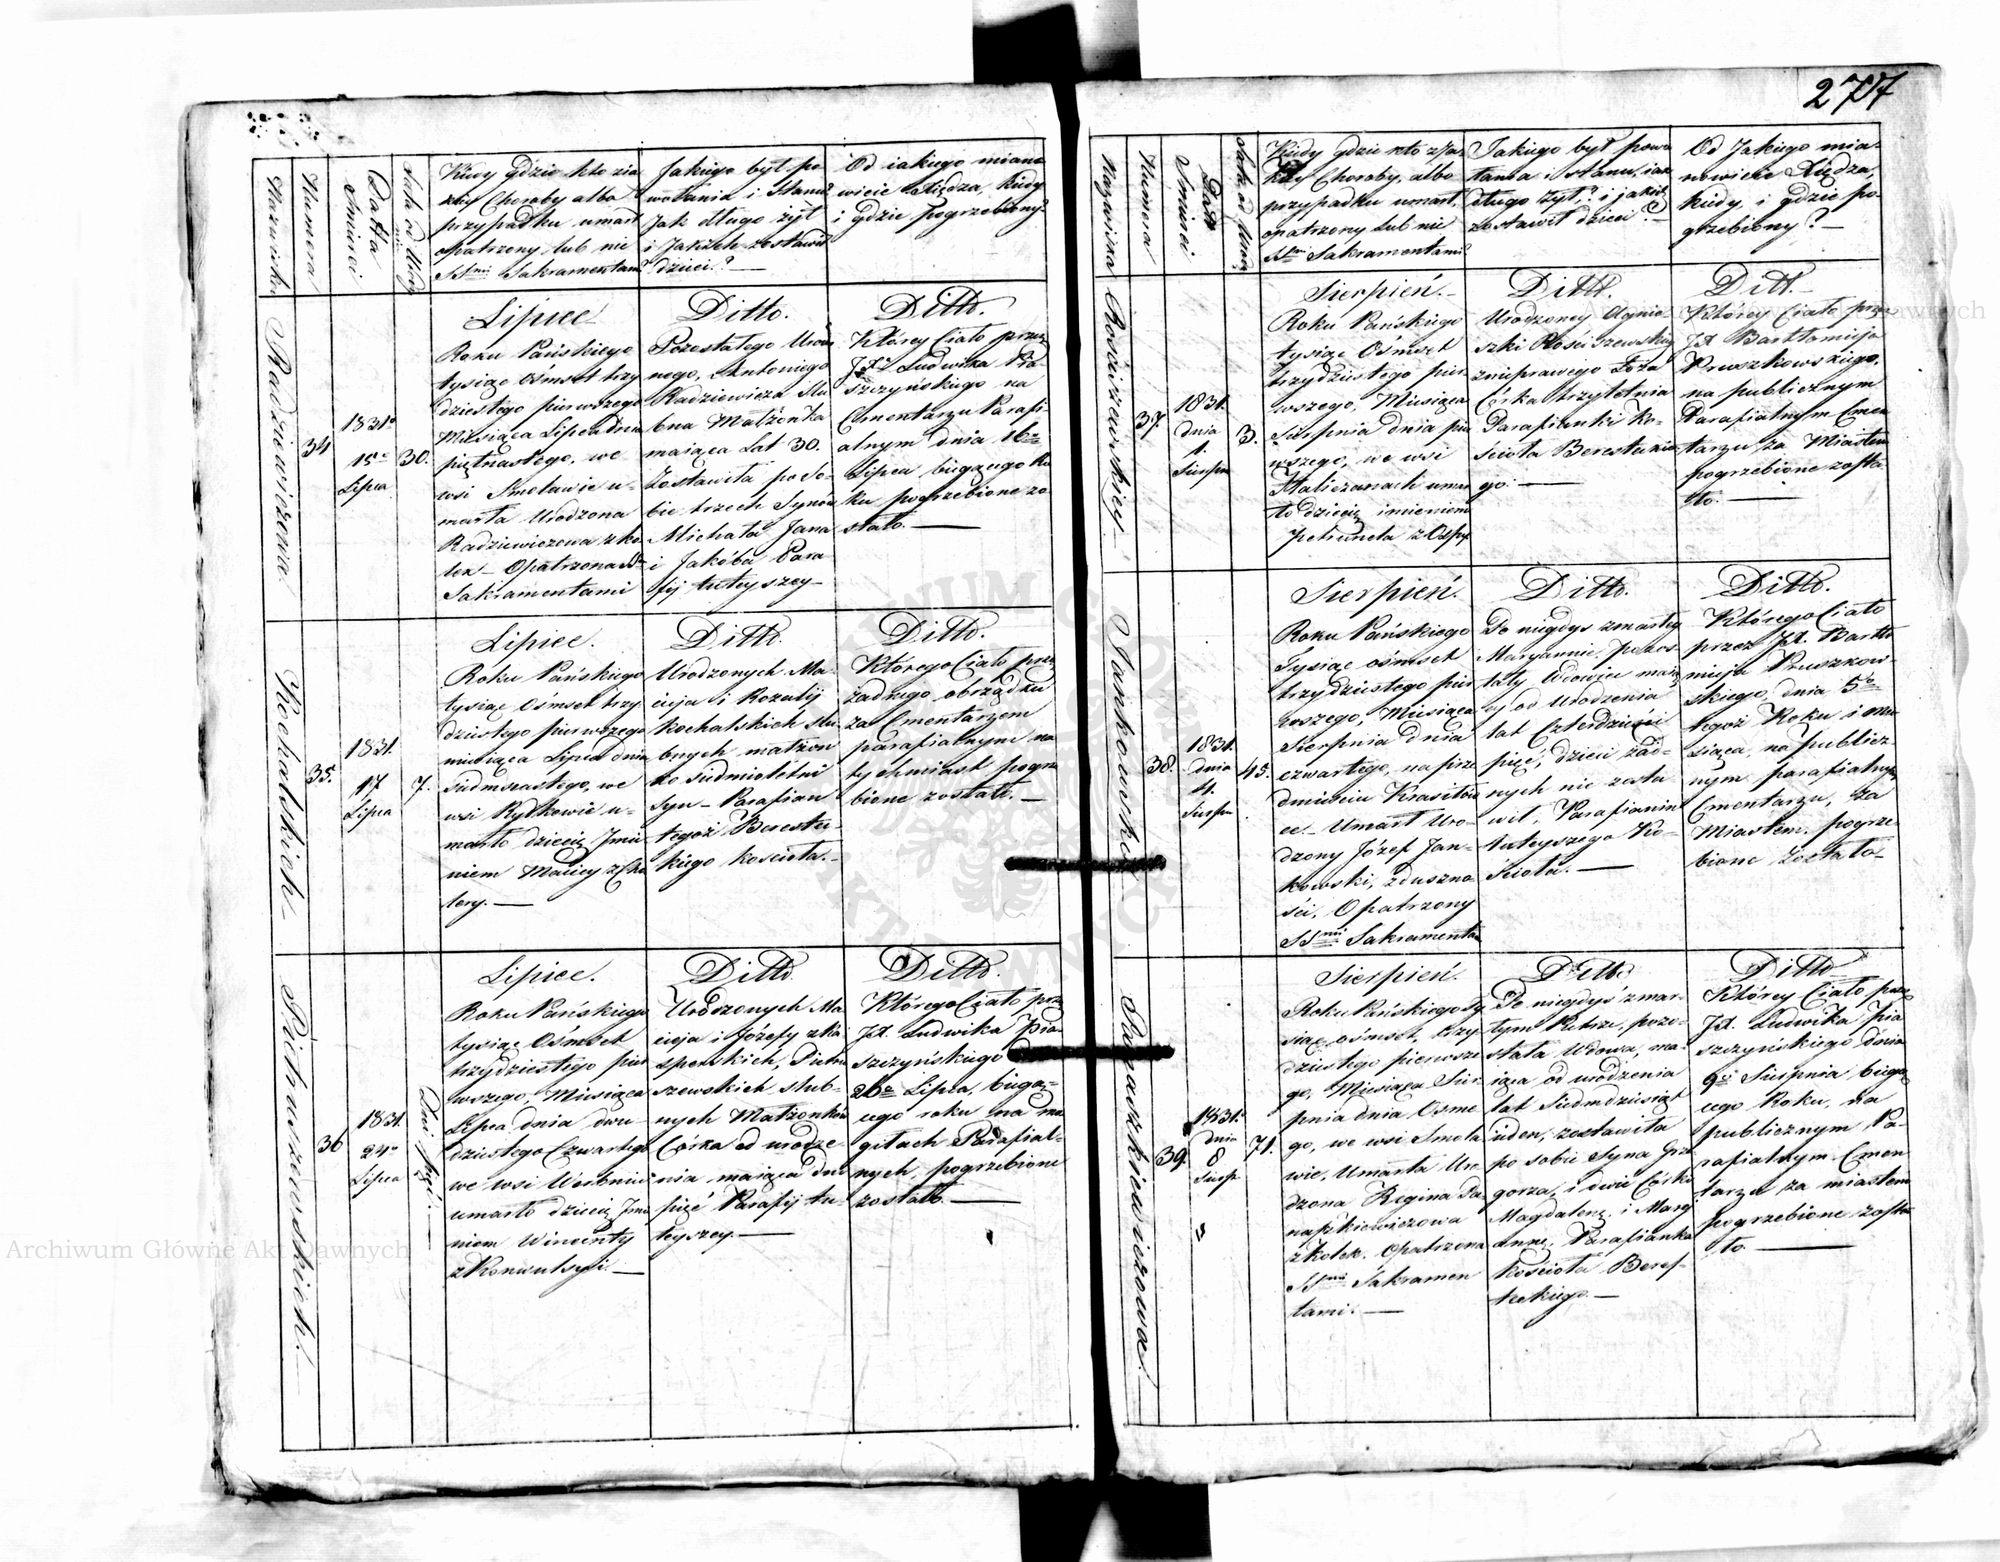 277
Nazwiska
Numera
Datta
śmierci
Kiedy gdzie kto z ia-
kiey Choroby albo
przypadku umarł
opatrzony lub nie
SSmi Sakramentami?
Jakiego był po-
wołania i Stanu?
Jak długo żył
i Jakich zostawił
dzieci? —
Od iakiego miano-
wicie Xiędza, kiedy
i gdzie pogrzebiony?
Radziewiczowa
34
1831o
15o
Lipca
30.
Lipiec
Roku Pańskiego
tysiąc ośmset trzy
dziestego pierwszego
Miesiąca Lipca dnia
piętnastego, we
wsi Smolawie u-
marła Urodzona
Radziewiczowa z ko-
lek — Opatrzona SS
Sakramentami
Ditto.
Pozostałego Uro-
nego, Antoniego
Radziewicza Slu-
bna Małżonka
maiąca Lat 30.
Zostawiła po So-
bie trzech Synów
Michała Jana
i Jakóba Para-
fij tuteyszey —
Ditto.
Którey Ciało przez
Jx Ludwika Pia-
szczyńskiego na
Cmentarzu Parafi-
alnym dnia 16o
Lipca, bieżącego Ro-
ku pogrzebione zo-
stało. —
Kochalskich
35.
1831.
17
Lipca
7.
Lipiec.
Roku Pańskiego
tysiąc Ośmset trzy
dziestego pierwszego
miesiąca Lipca dnia
siedmnastego, we
wsi Rytkowie u-
marło dziecię Jmie-
niem Maciey z Cho-
lery. —
Ditto.
Urodzonych Ma-
cieja i Rozalij
Kochalskich slu-
bnych małżon
ko siedmioletni
Syn — Parafian
tegoż Bereste-
kiego kościoła. —
Ditto.
Którego Ciało przez
żadnego obrządku
za Cmentarzem
parafialnym na
tychmiast pogrze-
bione zostało. —
Pietruszewskich. —
36
1831.
24o
Lipca
Dni Pięć. —
Lipiec.
Roku Pańskiego
tysiąc Ośmset
trzydziestego pier
wszego, Miesiąca
Lipca dnia dwu-
dziestego Czwartego
we wsi Werbniu
umarło dziecię Jmie
niem Wincenty
z Konwulsyi. —
Ditto
Urodzonych Ma-
cieja i Józefy z Ka
sperskich, Pietru
szewskich slub-
nych Małżonków
Córka od urodze-
nia maiąca dni
pięć Parafij tu-
teyszey. —
Ditto.
Którego Ciało prze
Jx. Ludwika Pia-
szczyńskiego
26o Lipca, bieżą-
cego roku na mo
giłach Parafial-
nych, pogrzebione
zostało. —
Nazwiska
Numera
Data
Śmierci
Kiedy gdzie kto z Ja-
kiey Choroby, albo
przypadku umarł,
opatrzony Lub nie
SSmi Sakramentami?
Jakiego był powo-
łania i stanu, iak
długo żył? i jakich
zostawił dzieci? —
Od Jakiego mia-
nowicie Xiędza,
kiedy i gdzie po-
grzebiony? —
Rościszewskiey —
37.
1831.
dnia
1.
Sierpn
3.
Sierpień. —
Roku Pańskiego
tysiąc Ośmset
trzydziestego pier
wszego, Miesiąca
Sierpnia dnia pier
wszego, we wsi
Haliczanach umar
ło dziecię imieniem
Petrunela z Ospy
Ditto.
Urodzoney Agnie
szki Rościszewskiey
znieprawego Łoża
Córka trzyletnia
Parafianki Ko-
ścioła Beresteckie
go: —
Ditt.
Którey Ciało prze
Jx Bartłomieja
Pruszkowskiego,
na publicznym
Parafialnym Cmen
tarzu za Miastem
pogrzebione zosta-
ło. —
Jankowskie
38.
1831.
dnia
4.
Sierpn
45.
Sierpień.
Roku Pańskiego
Tysiąc ośmset
trzydziestego pier
wszego, Miesiąca
Sierpnia dnia
czwartego, na prze
dmieściu Krasiłow
ce — Umarł Uro-
dzony Józef Jan-
kowski, z duszno-
ści, Opatrzony
SSmi Sakramenta
Ditto.
Po niegdyś zmarłey
Maryannie, pozos-
tały Wdowiec maią
cy od Urodzenia
lat Czterdzieści
pięć, dzieci żad-
nych nie zosta-
wił, Parafianin
tuteyszego Ko-
ścioła. —
Ditto.
Którego Ciało
przez Jx. Bartło
mieja Pruszkow-
skiego, dnia 5o
tegoż Roku i mie
siąca, na publicz-
nym parafialnym
Cmentarzu, za
Miastem, pogrze-
bione zostało —
Panaszkiewiczowa. —
39.
1831.
dnia
8
Sierp.
71.
Sierpień.
Roku Pańskiego ty
siąc ośmset, trzy-
dziestego pierwsze
go, Miesiąca Sier-
pnia dnia Osme
go, we wsi Smola
wie, Umarła Uro
dzona Regina Pa-
naszkiewiczowa
z kolek. Opatrzona
SSmi Sakramen
tami. —
Ditto
Po niegdyś zmar-
łym Pietrze, pozo-
stała Wdowa, ma-
iąca od urodzenia
lat Siedmdziesiąt
ieden, zostawiła
po sobie Syna Grze
gorza, i dwie Córki
Magdalenę, i Mary
annę, Parafianka
Kościoła Beres-
teckiego. —
Ditto
Którey Ciało przez
Jx. Ludwika Pia
szczyńskiego dnia
9o Sierpnia bieżą
cego Roku, na
publicznym Pa-
rafialnym Cmen
tarzu za miastem
pogrzebione zosta
ło. —
Archiwum Główne Akt Dawnych